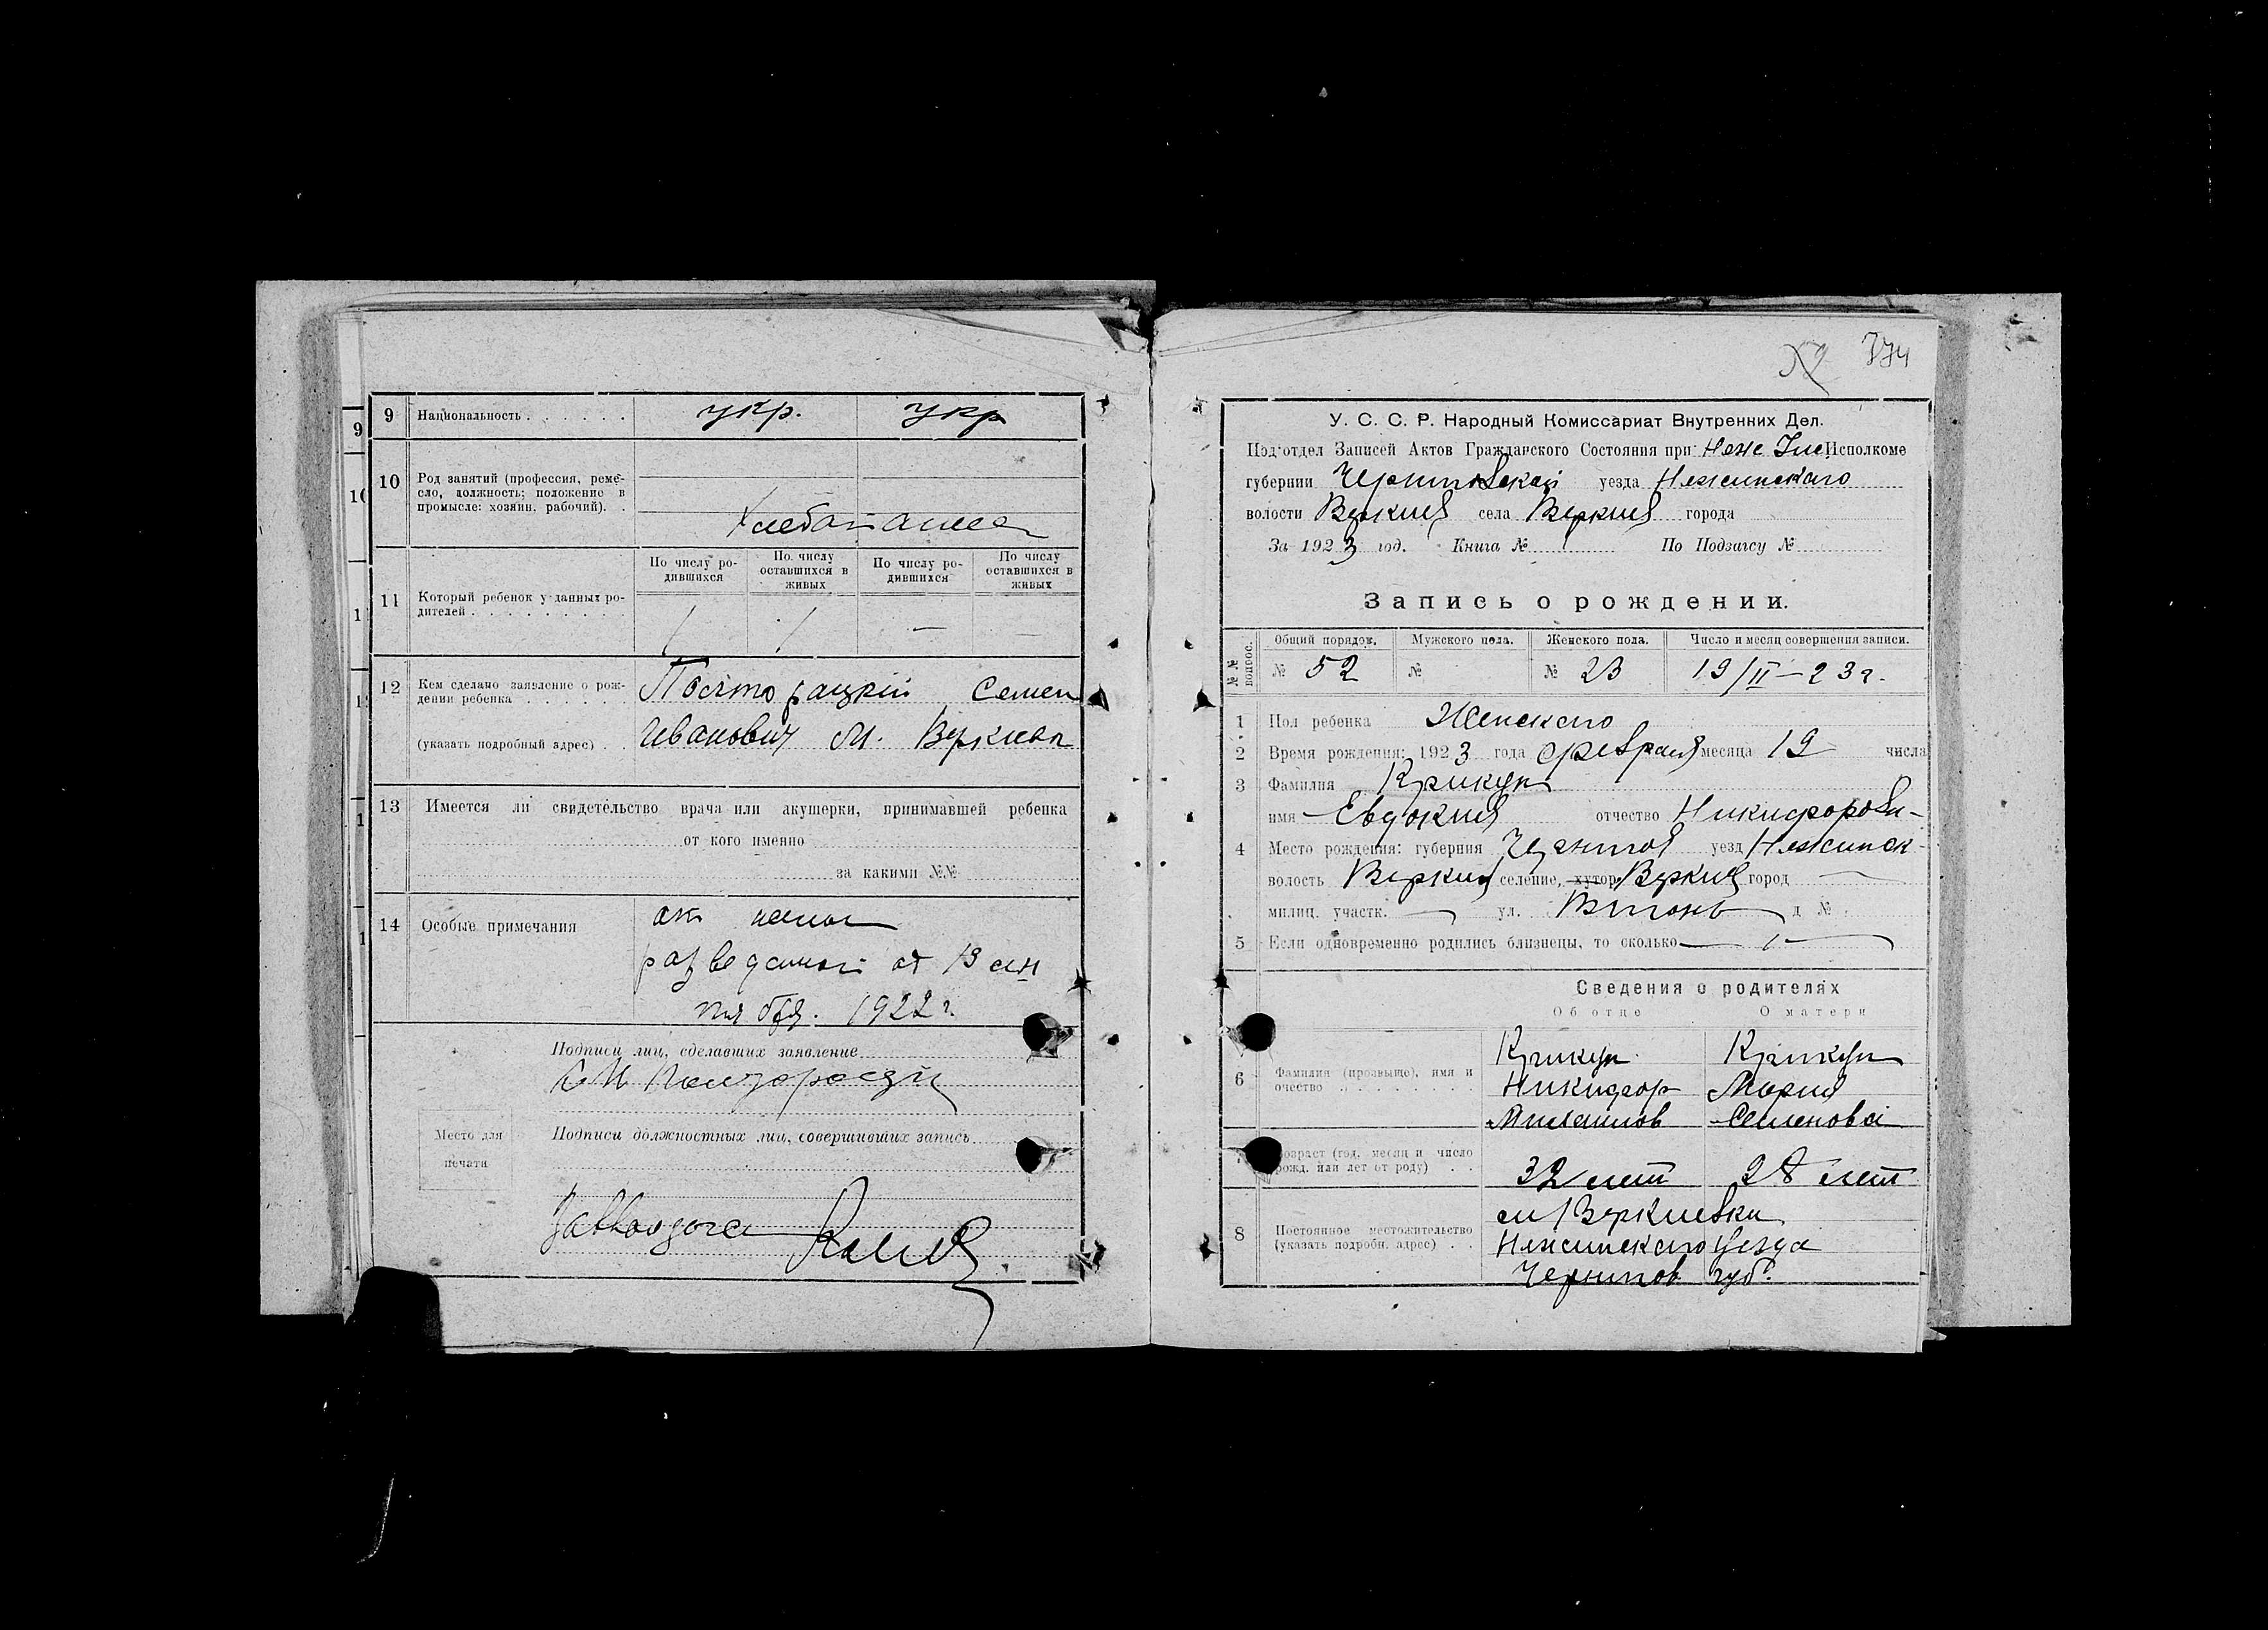 9 Национальность . . . . . . укр. укр
10 Род занятий (профессия, реме-
сло, должность; положение в
промысле: хозяин, рабочий). .
Хлебопашец
По числу ро-
дившихся
По числу
оставшихся в
живых
По числу ро-
дившихся
По числу
оставшихся в
живых
11 Который ребенок у данных ро-
дителей . . . . . . . . 1 1 — —
12 Кем сделано заявление о рож-
дении ребенка . . . . . . Семен
(указать подробный адрес) . . Иванович М. Веркиев
13 Имеется ли свидетельство врача или акушерки, принимавшей ребенка
от кого именно
за какими №№
14 Особые примечания
от 13 сен
тября. 1922 г.
Подписи лиц, сделавших заявление
Подписи должностных лиц, совершивших запись
Место для
печати
374
У. С. С. Р. Народный Комиссариат Внутренних Дел.
Подотдел Записей Актов Гражданского Состояния при Неж Исполкоме
губернии Черниговской уезда Неженского
волости Веркиев села Веркиев города
За 1923 год. Книга № По Подзагсу №
Запись о рождении.
№№ вопрос.
Общий порядок. Мужского пола. Женского пола. Число и месяц совершения записи.
№ 52 № № 23 19/II—23 г.
1 Пол ребенка Женского
2 Время рождения: 1923 года февраля месяца 19 числа
3 Фамилия Крикун
имя Евдокия отчество Никифоров-
4 Место рождения: губерния Чернигов уезд Неженск-
волость Веркиев селение, хутор Веркиев город —
милиц. участк. — ул. д №
5 Если одновременно родились близнецы, то сколько —
Сведения о родителях
Об отце О матери
6 Фамилия (прозвыще), имя и
очество . . . . . . . .
Крикун Крикун
Никифор Мария
Михаилов Семенова
Возраст (год, месяц и число
рожд. или лет от роду) . . 32 лет 28 лет
8 Постоянное местожительство
(указать подробн. адрес) . .
м Веркиевки
Неженского уезда
Чернигов губ.